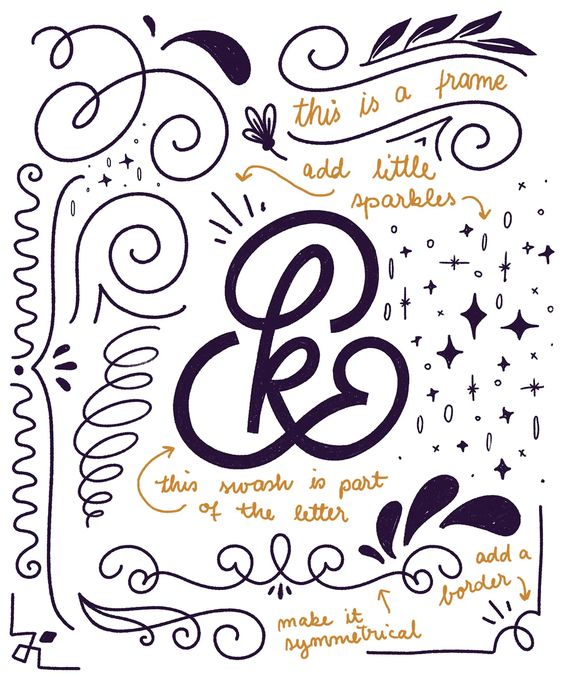 this is a frame
add little
sparkles
k
this swash is part
of the letter
add a
border
make it
symmetrical